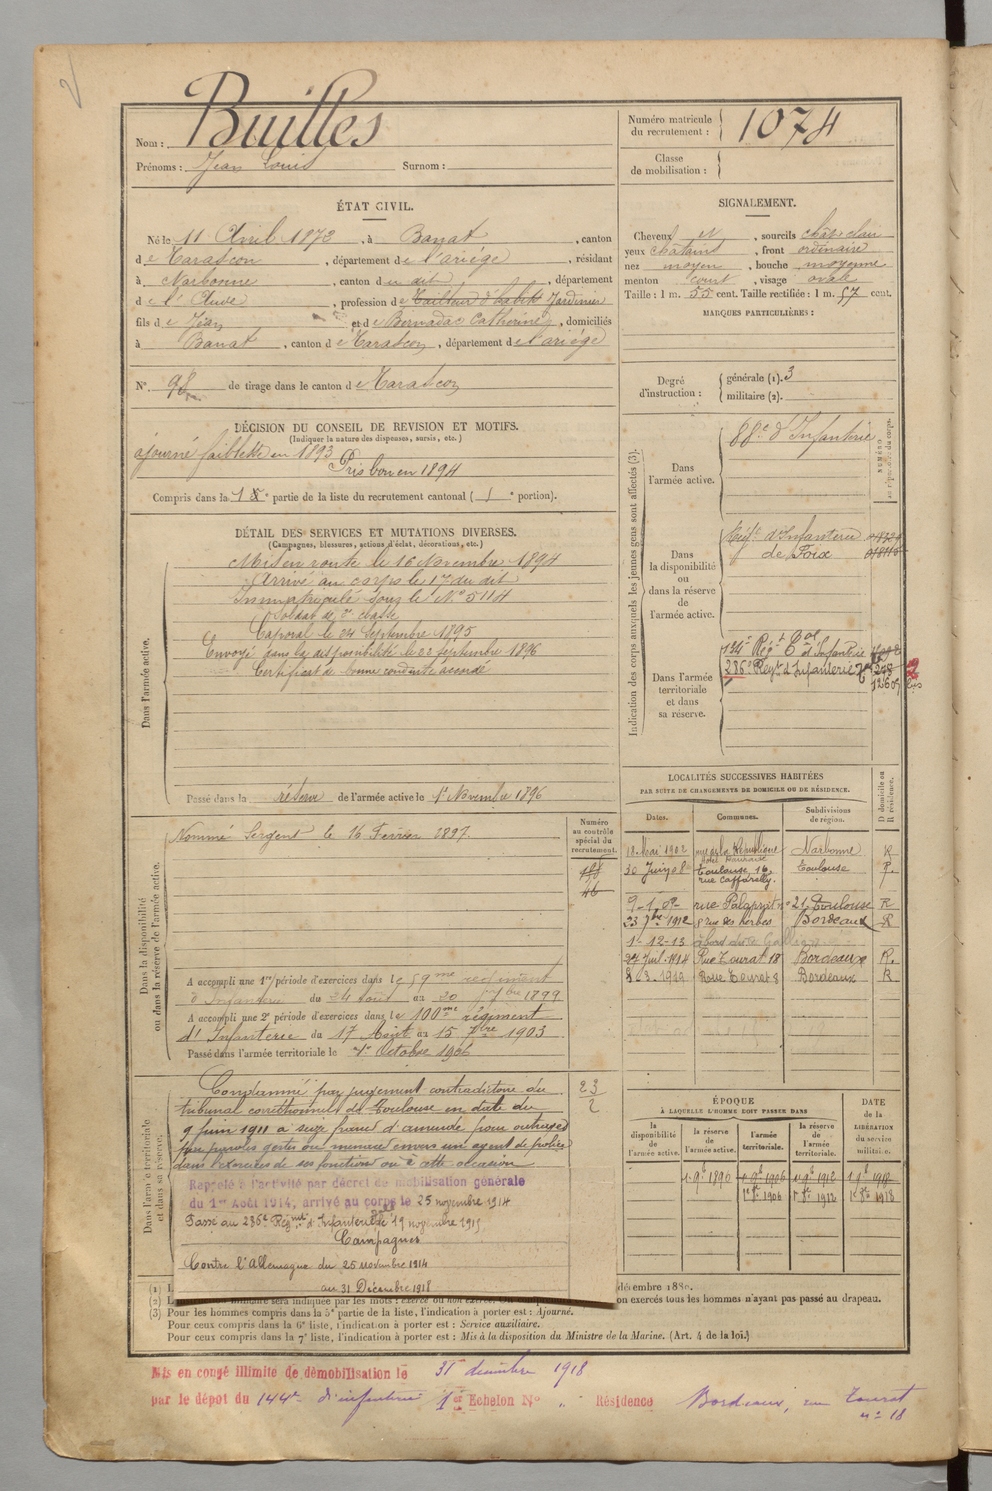 Nom : Builles
Prénoms : Jean Louis Surnom :
Numéro matricule du recrutement : 1074
Classe de mobilisation :
ÉTAT CIVIL.
Né le 11 Avril 1872, à Banat, canton
de Tarascon, département de l'ariége, résidant
à Narbonne, canton du dit, département
de l'Aude, profession de Tailleur d'habits Jardinier
fils de Jean et de Bernadac Catherine, domiciliés
à Banat, canton de Tarascon, département de l'ariége
N° 98 de tirage dans le canton de Tarascon
SIGNALEMENT.
Cheveux et, sourcils chât. clair
yeux châtains, front ordinaire
nez moyen, bouche moyenne
menton court, visage ovale
Taille : 1 m. 55 cent. Taille rectifiée : 1 m. 57 cent.
MARQUES PARTICULIÈRES :
Degré d'instruction : générale (1). 3
militaire (2).
DÉCISION DU CONSEIL DE REVISION ET MOTIFS.
(Indiquer la nature des dispenses, sursis, etc.)
ajourné faiblesse en 1893
Pris bon en 1894
Compris dans la 1e partie de la liste du recrutement cantonal ( 1e portion).
DÉTAIL DES SERVICES ET MUTATIONS DIVERSES.
(Campagnes, blessures, actions d'éclat, décorations, etc.)
Dans l'armée active.
Mis en route le 16 Novembre 1894
Arrivé au corps le 17 du dit
Immatriculé sous le N° 5114
Soldat de 2e classe
Caporal le 24 Septembre 1895
Envoyé dans la disponibilité le 22 septembre 1896
Certificat de bonne conduite accordé
Passé dans la réserve de l'armée active le 1er Novembre 1896
Indication des corps auxquels les jeunes gens sont affectés (3).
Dans l'armée active.
88e d'Infanterie
NUMÉRO au répertoire du corps.
Dans la disponibilité ou dans la réserve de l'armée active.
Régt d'Infanterie
de Foix
Dans l'armée territoriale et dans sa réserve.
134e Régt Tal d'Infanterie
286e Regt d'Infanterie
Dans la disponibilité ou dans la réserve de l'armée active.
Nommé Sergent le 16 Février 1897.
Numéro au contrôle spécial du recrutement.
A accompli une 1re période d'exercices dans le 59me régiment
d'Infanterie du 24 août au 20 7bre 1899
A accompli une 2e période d'exercices dans le 100me régiment
d'Infanterie du 17 Août au 15 7bre 1903
Passé dans l'armée territoriale le 1er Octobre 1906
LOCALITÉS SUCCESSIVES HABITÉES
PAR SUITE DE CHANGEMENTS DE DOMICILE OU DE RÉSIDENCE.
Dates. Communes. Subdivisions de région. D domicile ou R résidence.
18 Mai 1902 rue de la République Narbonne R
30 Juin 08 Toulouse, 16, rue Caffarelly. Toulouse R.
9-1-09 rue Palaprat n° 21 Toulouse R
23 7bre 1912 8 rue des herbes Bordeaux R
1-12-13
24 Juil. 1914 Rue Tourat 18 Bordeaux R.
3-1919 Rue Tourat 8 Bordeaux R
Dans l'armée territoriale et dans sa réserve.
Condamné par jugement contradictoire du
tribunal correctionnel de Toulouse en date du
9 juin 1911 à seize francs d'amende pour outrages
par paroles gestes ou menaces envers un agent de police
dans l'exercice de ses fonctions ou à cette occasion
23
2
Rappelé à l'activité par décret de mobilisation générale
du 1er Août 1914, arrivé au corps le 25 novembre 1914
Passé au 286e Régimt d'Infanterie le 19 novembre 1915
Campagnes
Contre l'Allemagne du 25 novembre 1914
au 31 Décembre 1918
ÉPOQUE
À LAQUELLE L'HOMME DOIT PASSER DANS
la disponibilité de l'armée active. la réserve de l'armée active. l'armée territoriale. la réserve de l'armée territoriale.
DATE de la LIBÉRATION du service militaire.
1er 9bre 1896 1er 8bre 1906 1er 8bre 1912 1er 8bre 1918
(1) décembre 1880.
(2) on exercés tous les hommes n'ayant pas passé au drapeau.
(3) Pour les hommes compris dans la 5e partie de la liste, l'indication à porter est : Ajourné.
Pour ceux compris dans la 6e liste, l'indication à porter est : Service auxiliaire.
Pour ceux compris dans la 7e liste, l'indication à porter est : Mis à la disposition du Ministre de la Marine. (Art. 4 de la loi.)
Mis en congé illimité de démobilisation le 31 décembre 1918
par le dépôt du 144e d'infanterie 1er Echelon N° Résidence Bordeaux, rue Tourat
n° 18